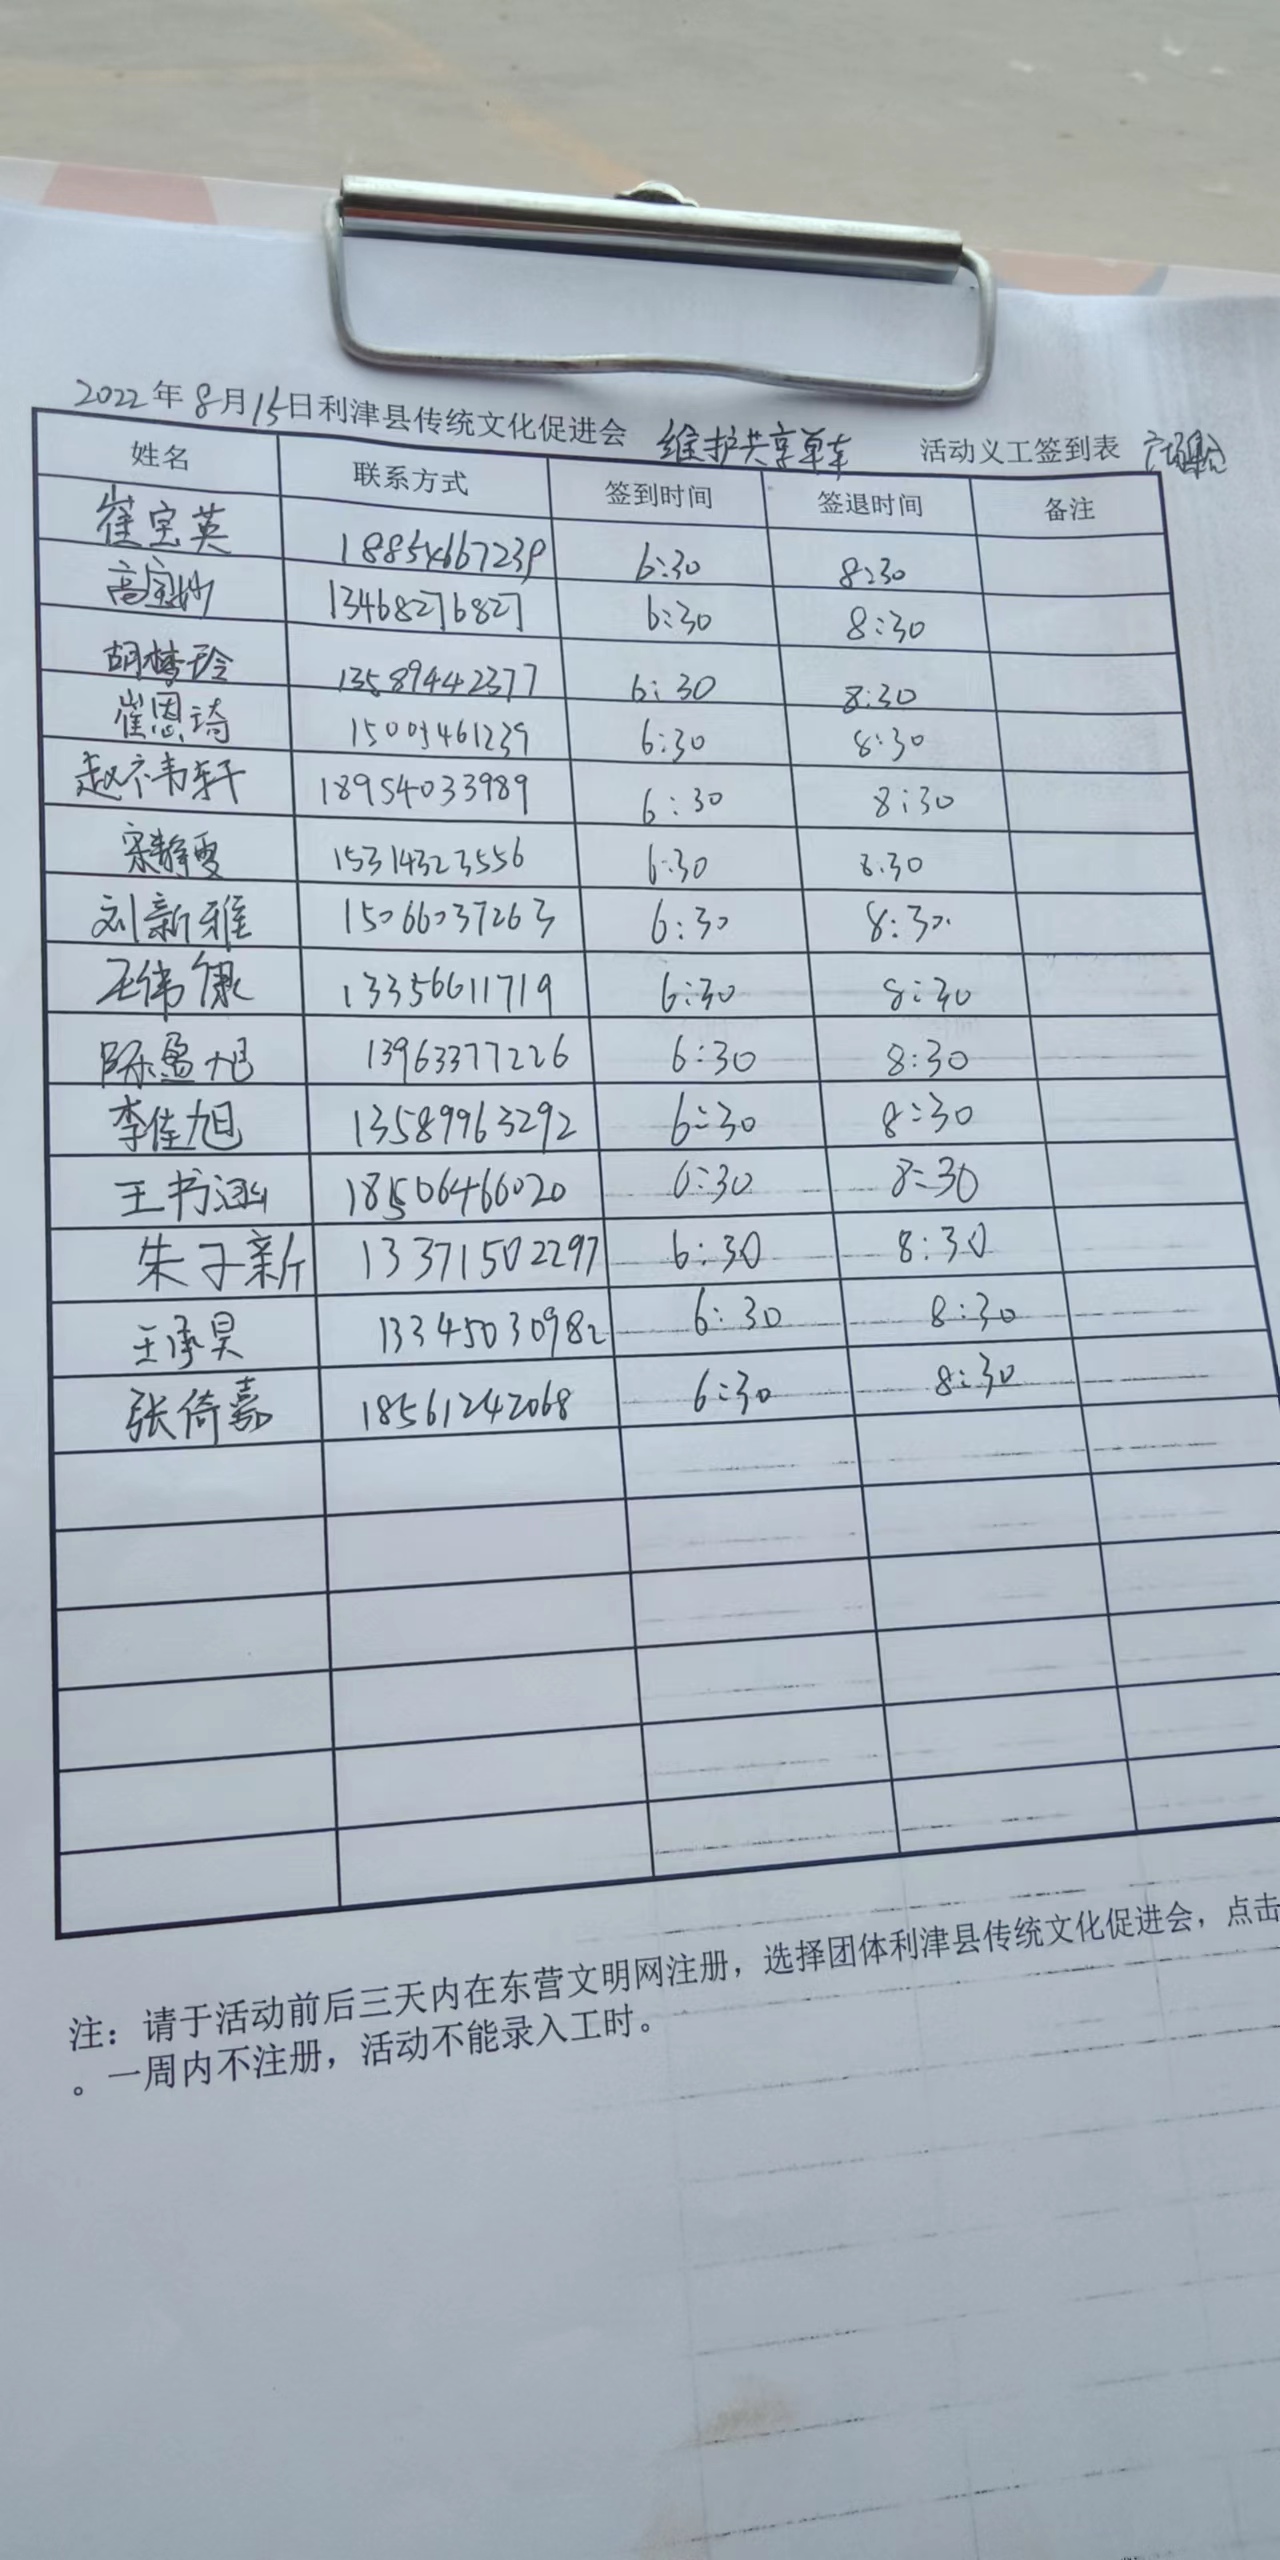 2022年8月15日利津县传统文化促进会 维护共享单车 活动义工签到表
姓名 联系方式 签到时间 签退时间 备注
崔宝英 18854667239 6:30 8:30
高宝妙 13468276827 6:30 8:30
胡梦玲 13589442377 6:30 8:30
崔恩琦 15003461239 6:30 8:30
赵祎轩 18954033989 6:30 8:30
宋静雯 15314323556 6:30 8:30
刘新雅 15066037263 6:30 8:30
王伟康 13356611719 6:30 8:30
陈盈旭 13963377226 6:30 8:30
李佳旭 13589963292 6:30 8:30
王书涵 18506466020 6:30 8:30
朱子新 13371502297 6:30 8:30
王承昊 13345030982 6:30 8:30
张倚嘉 18561242068 6:30 8:30
注：请于活动前后三天内在东营文明网注册，选择团体利津县传统文化促进会，点击
。一周内不注册，活动不能录入工时。